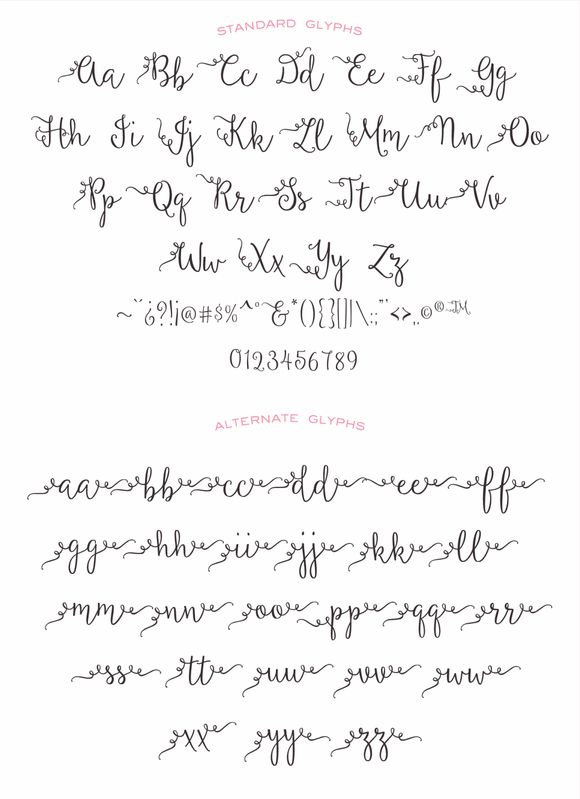 STANDARD GLYPHS
Aa Bb Cc Dd Ee Ff Gg
Hh Ii Jj Kk Ll Mm Nn Oo
Pp Qq Rr Ss Tt Uu Vv
Ww Xx Yy Zz
~`¨¿?!¡@#$%^°&*(){}[]|\:;"'<>,.©®™
0123456789
ALTERNATE GLYPHS
aa bb cc dd ee ff
gg hh ii jj kk ll
mm nn oo pp qq rr
ss tt uu vv ww
xx yy zz